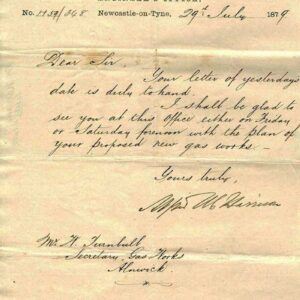 No. 1153/368 Newcastle-on-Tyne, 29th July 1879
Dear Sir,
Your letter of yesterdays
date is duly to hand.
I shall be glad to
see you at this office either on Friday
or Saturday forenoon with the plan of
your proposed new gas works —
Yours truly,
Harrison
Mr. H. Turnbull
Secretary, Gas Works
Alnwick.